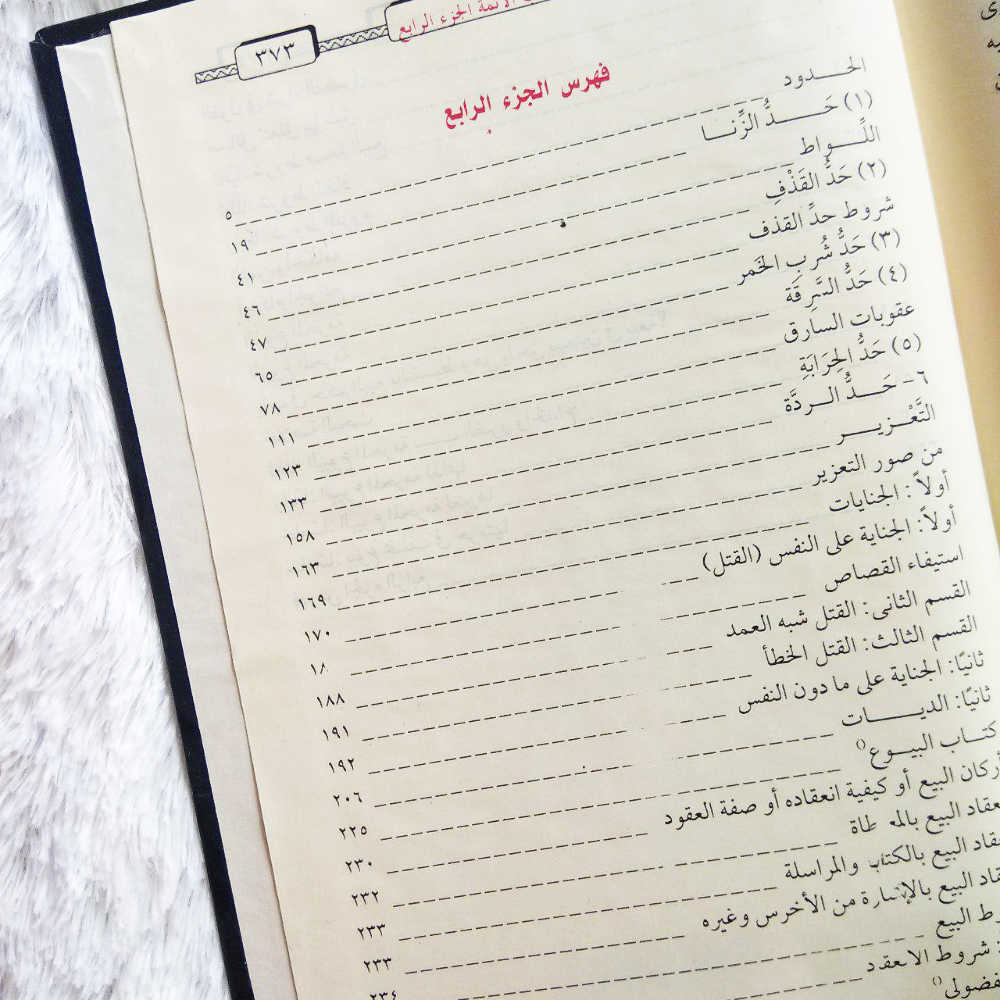 الأئمة الجزء الرابع
٣٧٣
فهرس الجزء الرابع
الحدود ٥
(١) حَدُّ الزِّنا ١٩
اللِّواط ٤١
(٢) حَدُّ القَذْفِ ٤٦
شروط حدِّ القذف ٤٧
(٣) حَدُّ شُرب الخَمر ٦٥
(٤) حَدُّ السَّرِقَة ٧٨
عقوبات السارق ١١١
(٥) حَدُّ الحِرَابَةِ ١٢٣
٦- حَدُّ الردَّة ١٣٣
التَّعْزير ١٥٨
من صور التعزير ١٦٣
أولاً: الجنايات ١٦٩
أولاً: الجناية على النفس (القتل) ١٧٠
استيفاء القصاص ١٨
القسم الثانى: القتل شبه العمد ١٨٨
القسم الثالث: القتل الخطأ ١٩١
ثانيًا: الجناية على ما دون النفس ١٩٢
ثانيًا: الديات ٢٠٦
كتاب البيوع(١) ٢٢٥
أركان البيع أو كيفية انعقاده أو صفة العقود ٢٣٠
البيع ٢٣٢
البيع بالكتاب والمراسلة ٢٣٣
البيع بالإشارة من الأخرس وغيره ٢٣٣
البيع ٢٣٤
شروط